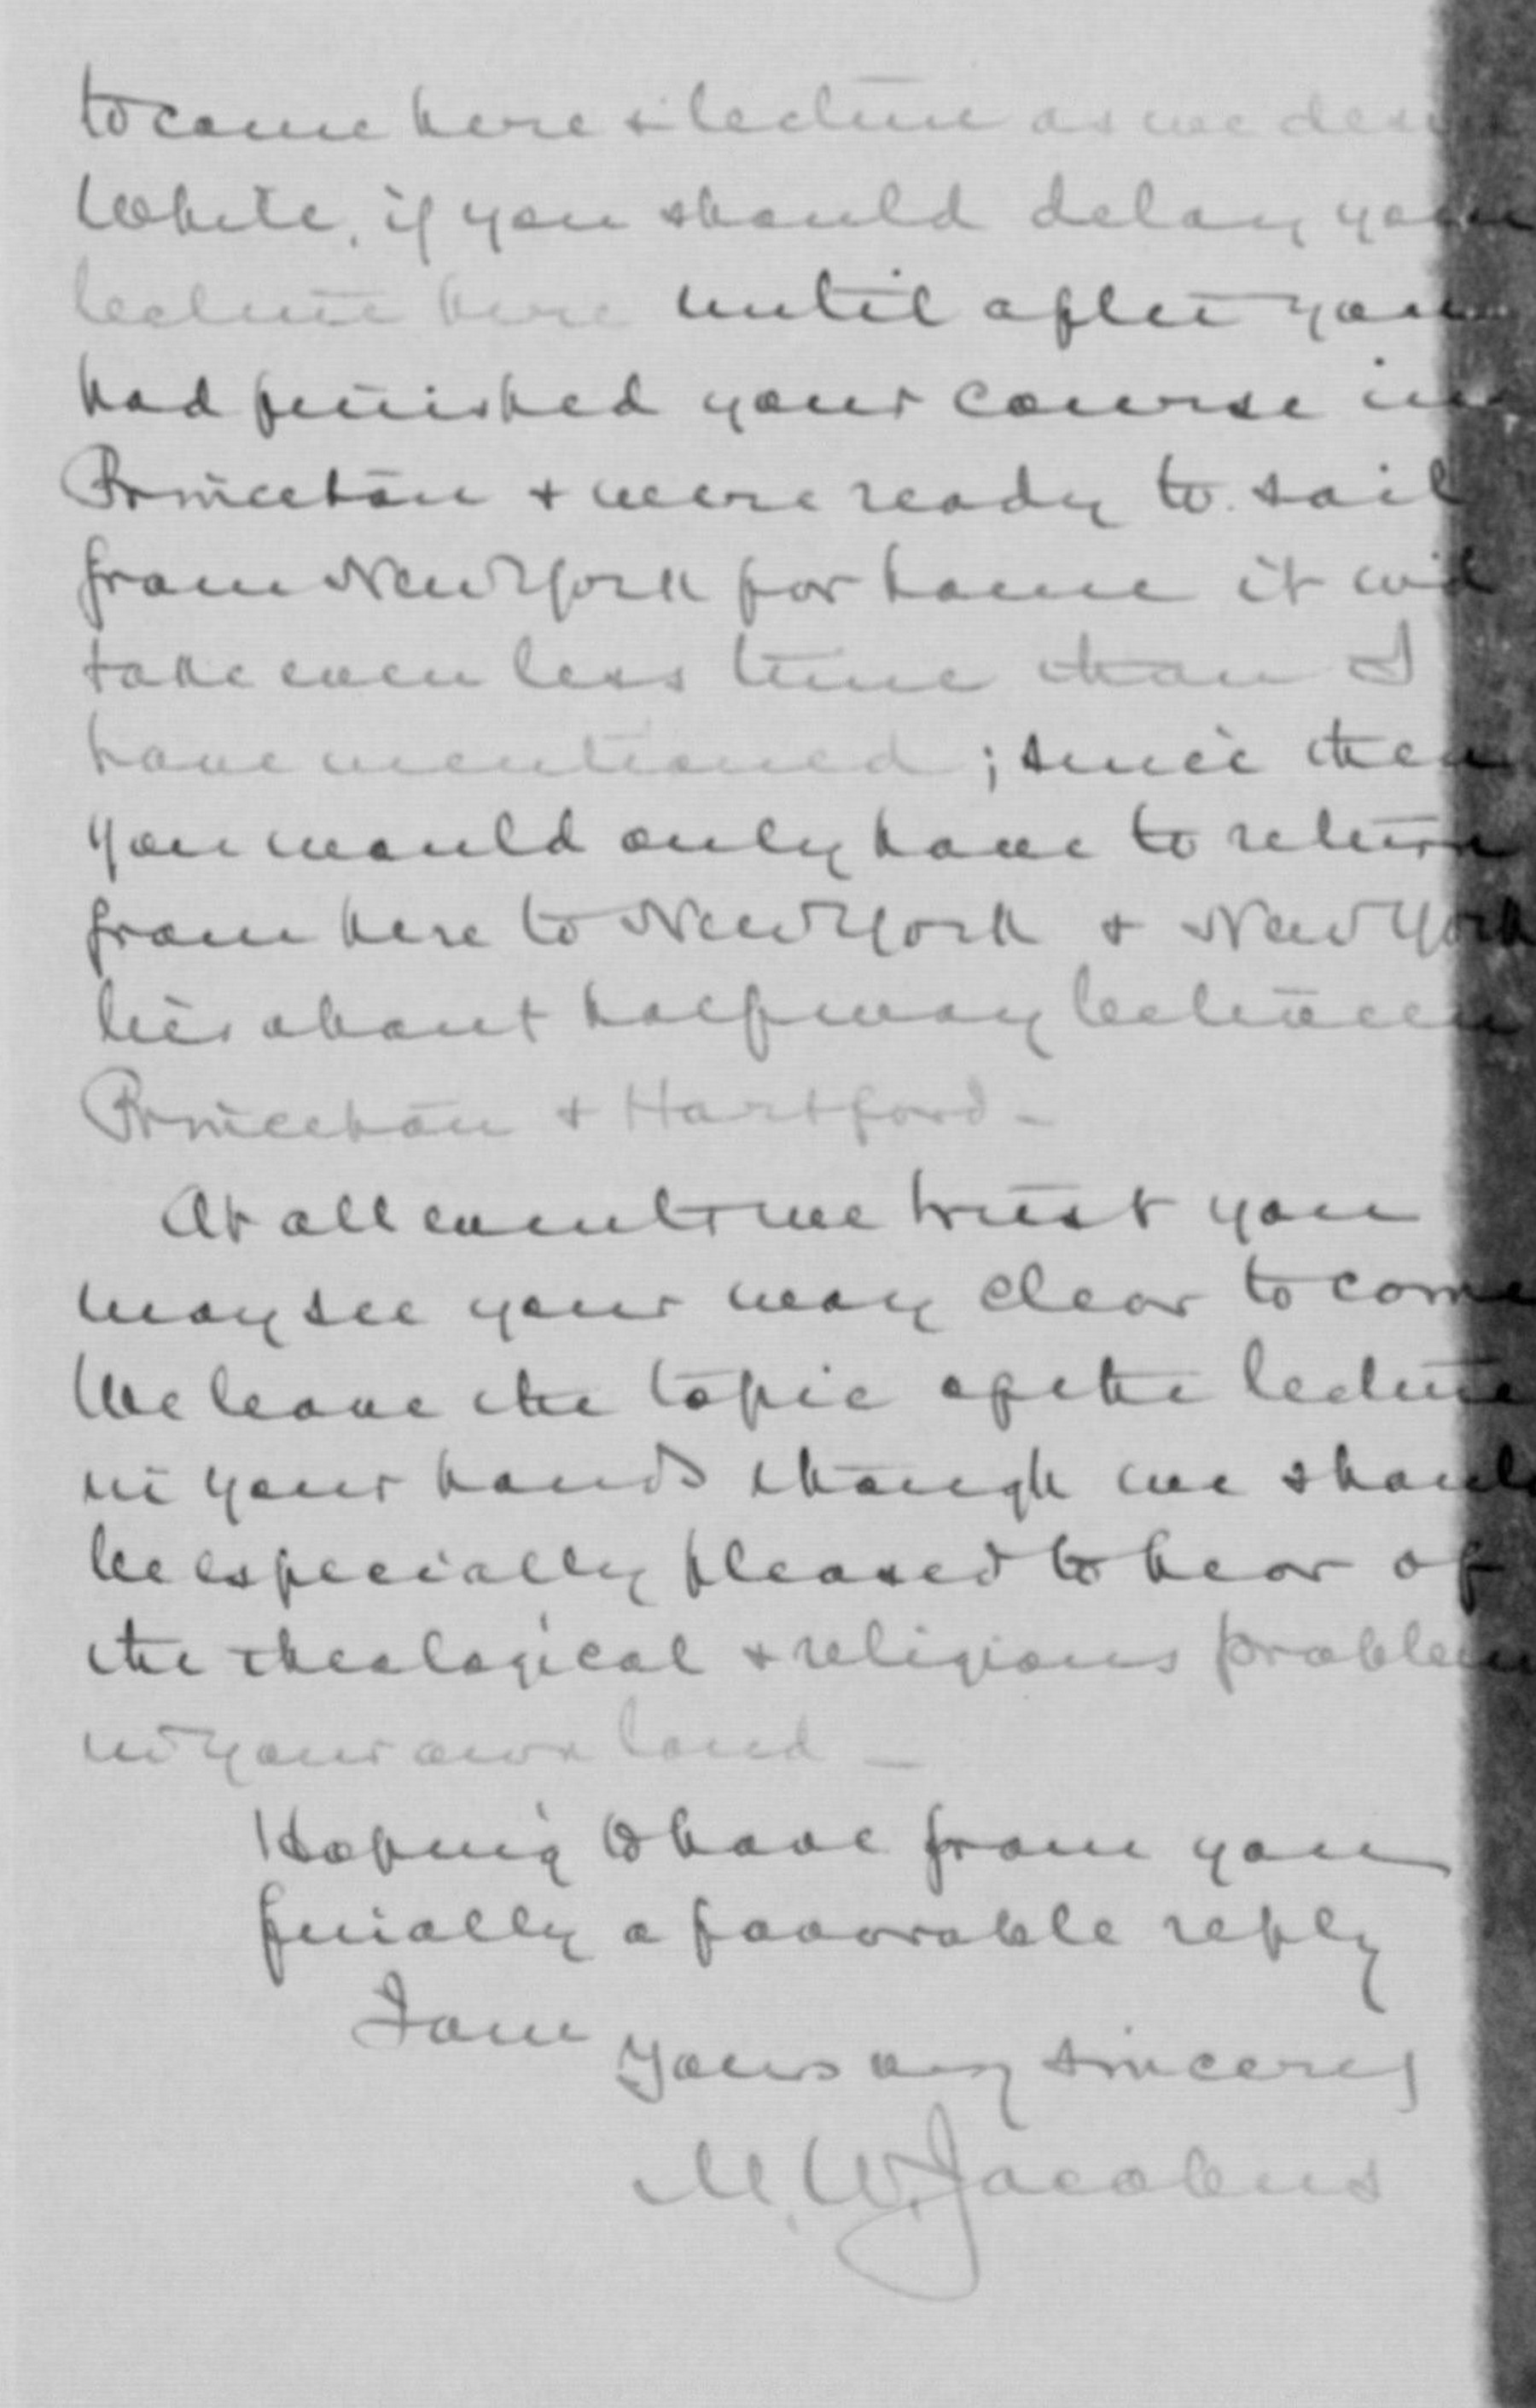 to come here & lecture as we desire
While, if you should delay your
lecture here until after you
had finished your course in
Princeton & were ready to sail
from New York for home it will
take even less time than I
have mentioned; since then
you would only have to return
from here to New York & New York
lies about half way between
Princeton & Hartford -
At all events we trust you
may see your way clear to come
We leave the topic of the lecture
in your hands though we should
be especially pleased to hear of
the theological & religious problem
in your own land -
Hoping to have from you
finally a favorable reply
I am
Yours very sincerely
M. W. Jacobus